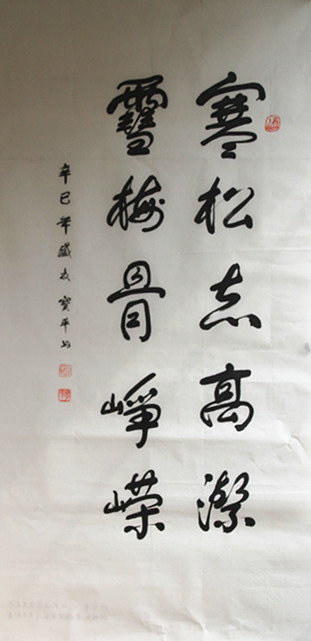 寒松志高潔
雪梅骨崢嶸
辛巳年 寶平